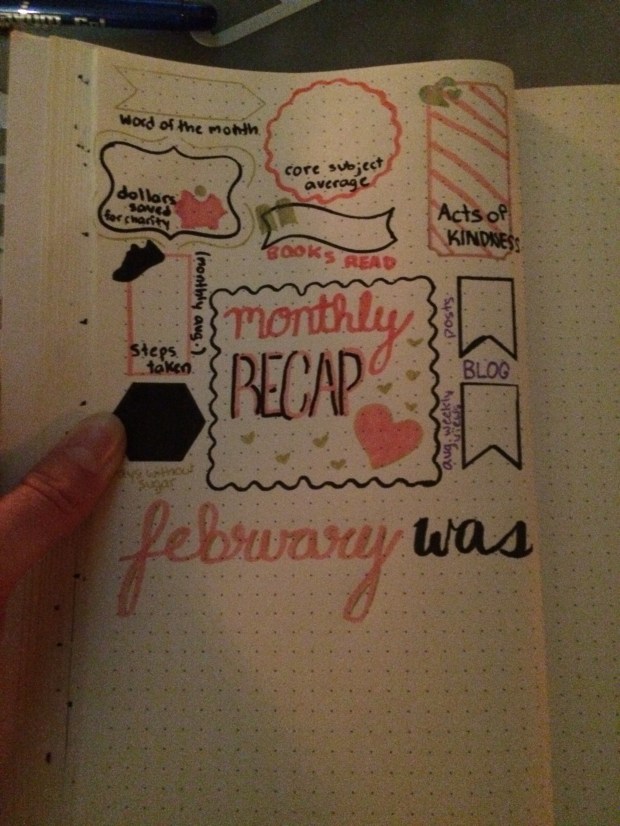 word of the month
core subject
average
dollars
saved
for charity
Acts of
KINDNESS
BOOKS READ
(monthly avg.)
steps
taken
monthly
RECAP
posts
BLOG
avg. weekly
views
without
sugar
february was